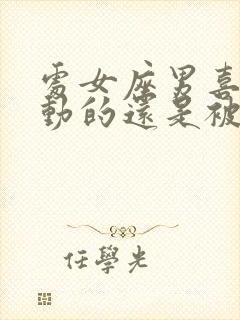 處女座男喜
動的還是被
任學光